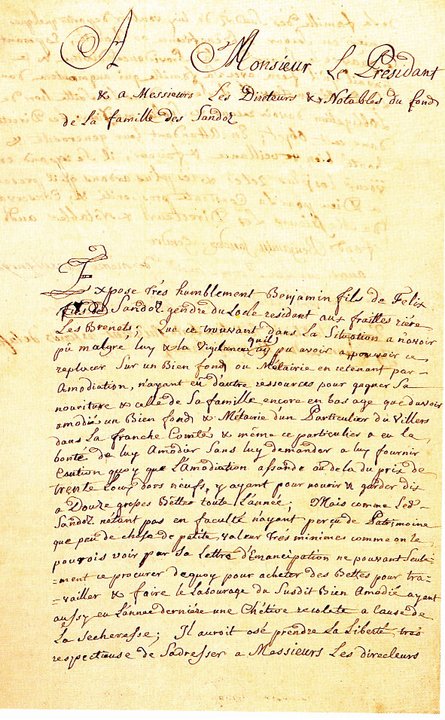 A Monsieur Le Présidant
& a Messieurs Les Diréteurs & Notables du fond
de la famille des Sandoz
Expose Trés humblement Benjamin fils de Felix
Sandoz gendre du Locle residant aux frailles riére
Les Brenets; Que ce trouvant dans La Situation a n'avoir
pû malgré luy & la Vigilance qu'il pû avoir a pouvoir ce
replacer Sur un Bien fond, ou Métairie en cetenant par
Amodiation, n'ayant eu d'autre ressources pour gagner Sa
nouriture & celle de Sa famille encore en bas age que d'avoir
amodiés un Bien fond & Métarie d'un Particulier du Villers
dans La franche Comtés & même ce particulier a eu la
bonté de luy Amodier Sans luy demander a luy fournir
Caution quoy que L'Amodiation assende au dela du prix de
trente Louy d'ors neufs, y ayant pour nourir & garder dis
a Douze grosses Bettes toute L'année; Mais comme Led.
Sandoz n'étant pas en faculté n'ayant perçu de Patrimoine
que peu de chose de petite valeur Trés minimes comme on le
pouroit voir par Sa Lettre d'Emancipation ne pouvant Seule
=ment ce procurer dequoy pour acheter des Bettes pour tra
=vailler & faire le Labourage du Susdit Bien Amodié ayant
aussy eu L'année derniére une Chétive recolate a cause de
La Secheresse; Il auroit osé prendre La Liberté trés
respectieuse de S'adresser a Messieurs Les directeurs